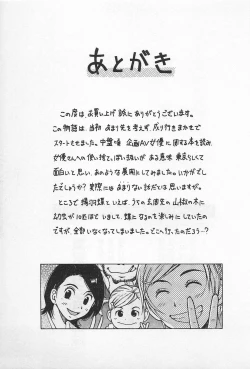 あとがき
この度は、お買い上げ誠にありがとうございます。
この物語は、当初あまり先を考えず、成り行きまかせで
スタートをもちました。中盤頃 企画AV女優に関する本を読み、
女優さんへの使い捨て、ぽい扱いが ある意味 東京らしくて
面白いと思い、あのような展開にしてみました。いかがでし
たでしょうか? 実際には あまりない話だとは 思いますが。
ところで 揚羽蝶といえば、うちの玄関先の 山椒の木に
幼虫が10匹ほどいまして、蝶になるのを楽しみにしていたの
ですが、全部いなくなってしまいました。どこへ行ったのだろう…?